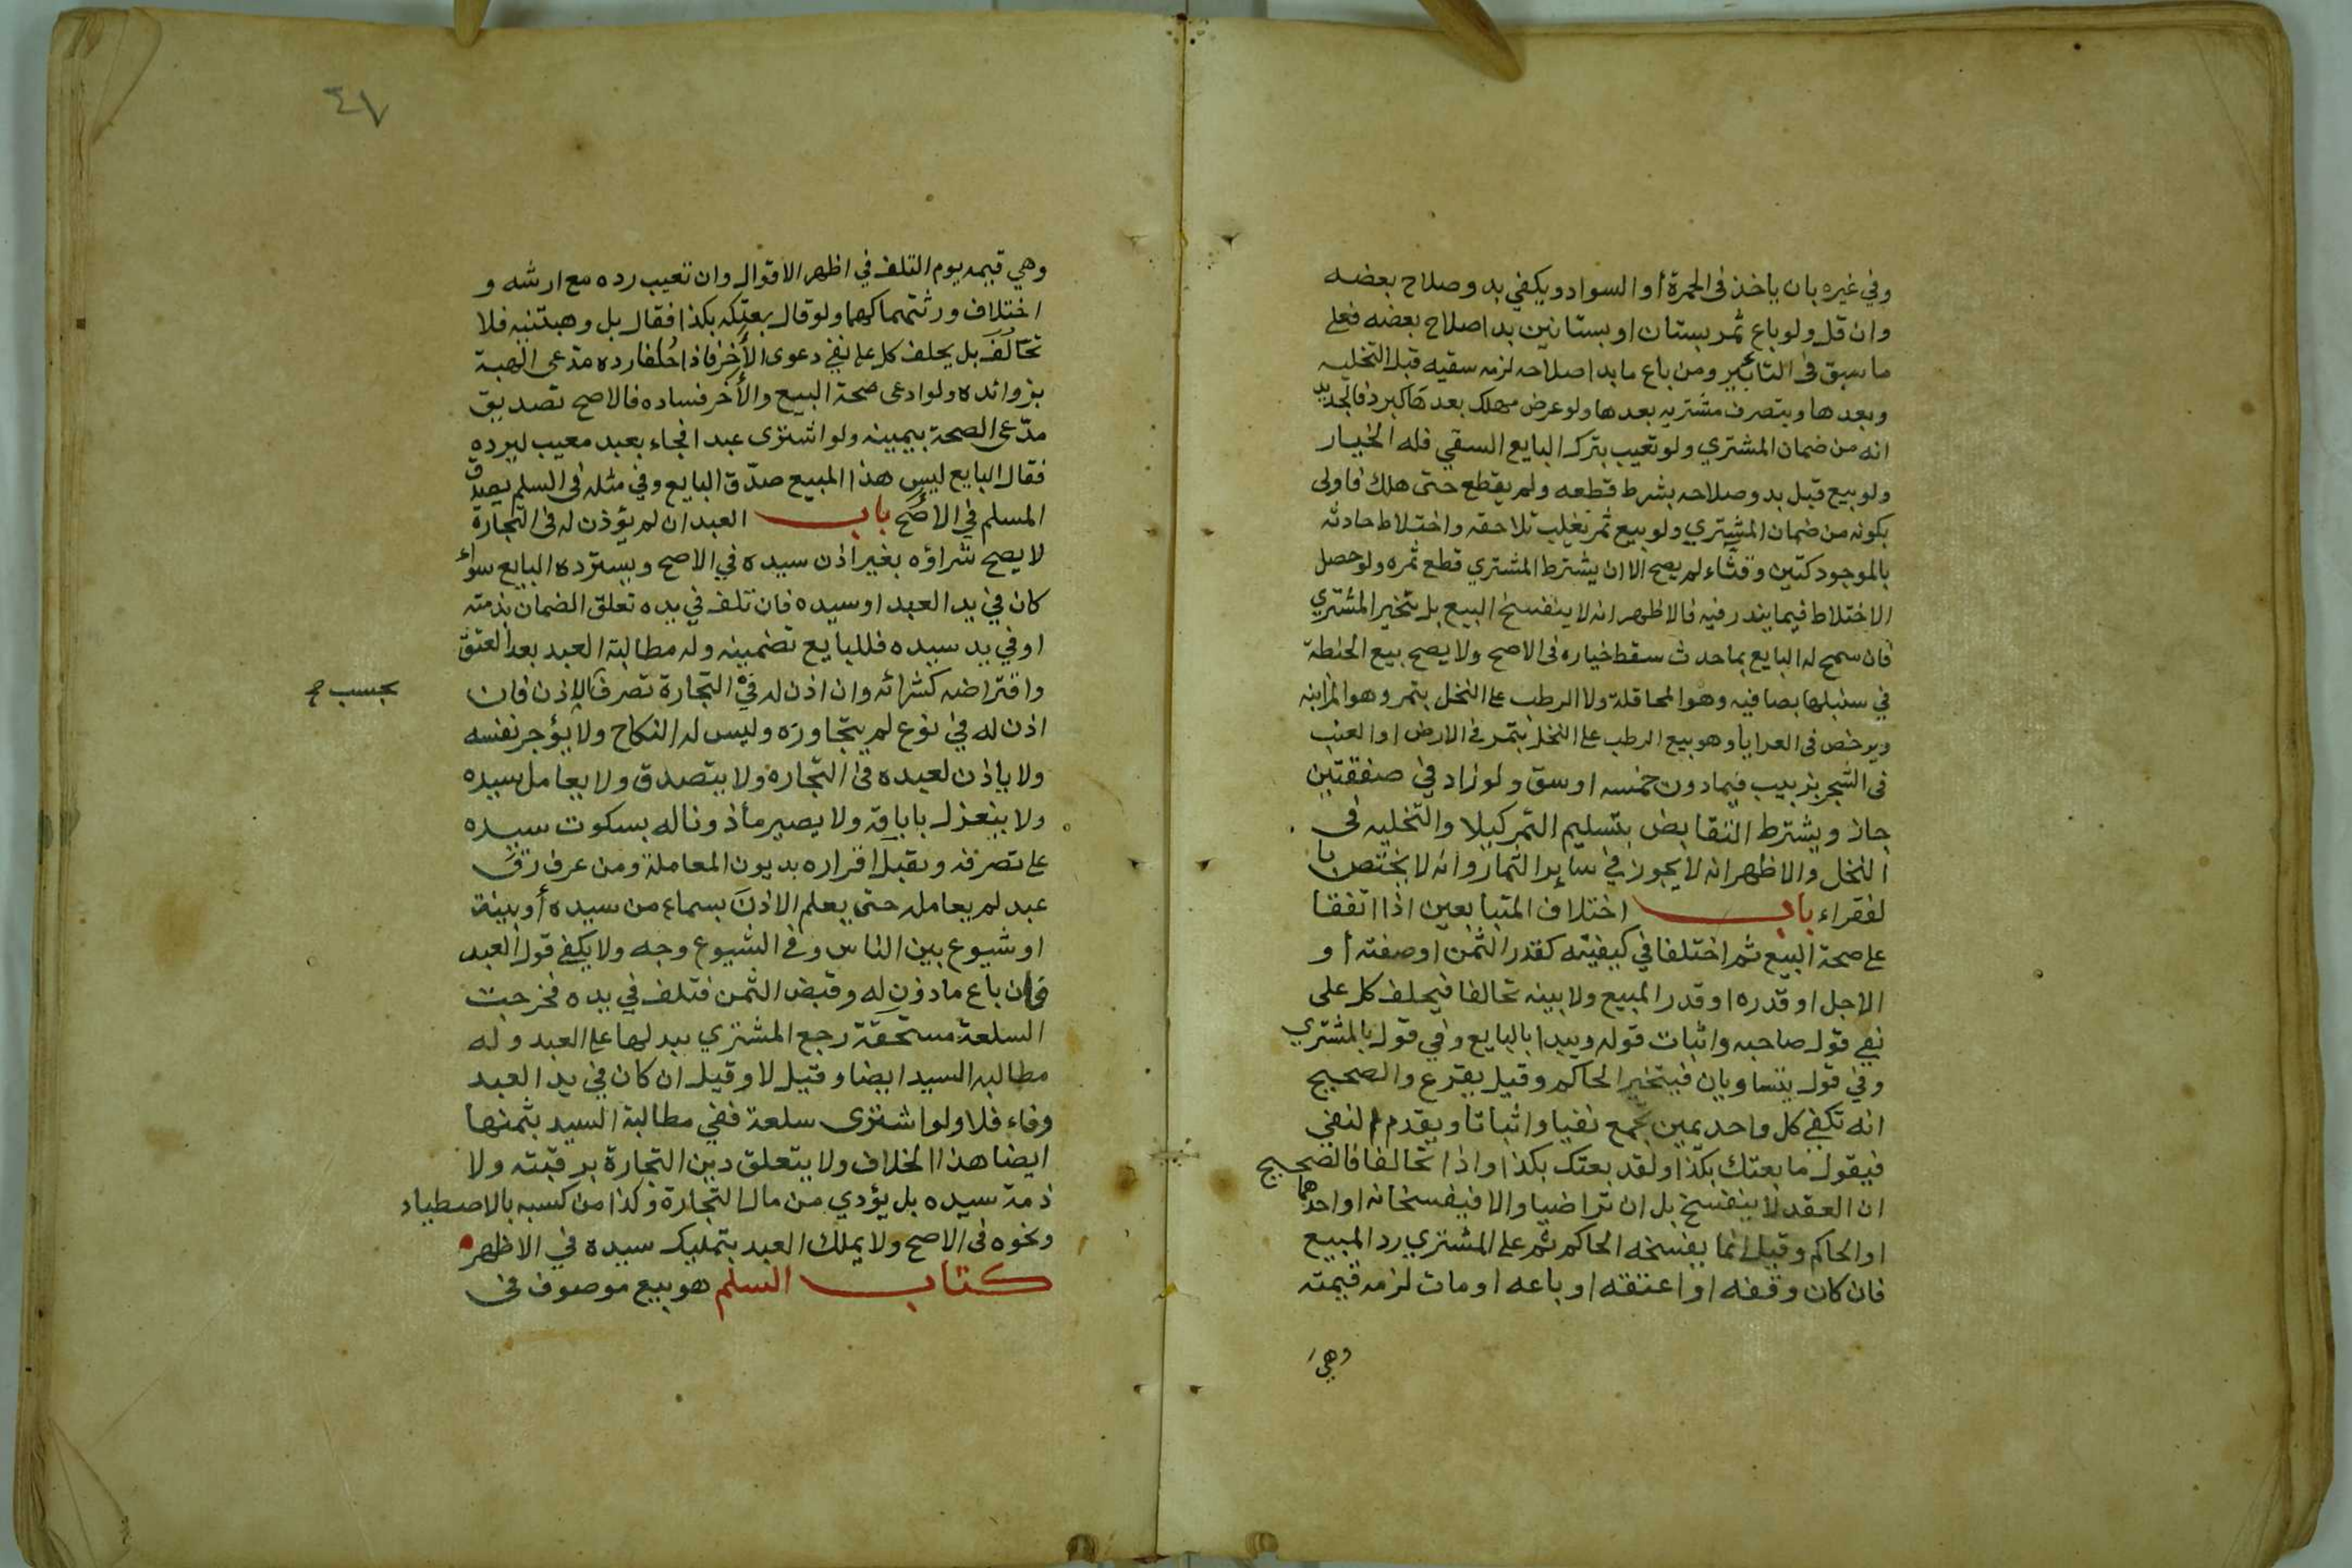 وفي غيره بان ياخذ فى الحمرة أو السواد ويكفي بدو صلاح بعضه
وان قل ولو باع ثمر بستان او بستانين بدا صلاح بعضه فعلى
ما سبق فى التابير ومن باع ما بدا صلاحه لزمه سقيه قبل التخليه
وبعدها ويتصرف مشتريه بعدها ولو عرض مهلك بعدها كبرد فالجديد
انه من ضمان المشتري ولو تعيب بترك البايع السقي فله الخيار
ولو بيع قبل بدو صلاحه بشرط قطعه ولم يقطع حتى هلك فاولى
بكونه من ضمان المشتري ولو بيع ثمر تغلب تلاحقه واختلاط حادثه
بالموجود كتين وقثاء لم يصح الا ان يشترط المشتري قطع ثمره ولو حصل
الاختلاط فيما يندر فيه فالاظهر انه لا ينفسخ البيع بل يتخير المشتري
فان سمح له البايع بما حدث سقط خياره فى الاصح ولا يصح بيع الحنطة
في سنبلها بصافيه وهو المحاقلة ولا الرطب على النخل بتمر وهو المزابنه
ويرخص فى العرايا وهو بيع الرطب على النخل بتمر في الارض او العنب
فى الشجر بزبيب فيما دون خمسه اوسق ولو زاد في صفقتين
جاز ويشترط التقابض بتسليم التمر كيلا والتخليه فى
النخل والاظهر انه لا يجوز في سائر الثمار وانه لا يختص با
لفقراء باب اختلاف المتبايعين اذا اتفقا
على صحة البيع ثم اختلفا في كيفيته كقدر الثمن او صفته أو
الاجل او قدره او قدر المبيع ولا بينه تحالفا فيحلف كل على
نفي قول صاحبه واثبات قوله ويبدا بالبايع وفي قول بالمشتري
وفي قول يتساويان فيتخير الحاكم وقيل يقرع والصحيح
انه تكفي كل واحد يمين تجمع نفيا واثباتا ويقدم النفي
فيقول ما بعتك بكذا ولقد بعتك بكذا واذا تحالفا فالصحيح
ان العقد لا ينفسخ بل ان تراضيا والا فيفسخانه او احدهما
او الحاكم وقيل انما يفسخه الحاكم ثم على المشتري رد المبيع
فان كان وقفه او اعتقه او باعه او مات لزمه قيمته
وهي
٤٧
وهي قيمه يوم التلف في اظهر الاقوال وان تعيب رده مع ارشه و
اختلاف ورثتهما كهما ولو قال بعتكه بكذا فقال بل وهبتنيه فلا
تحالف بل يحلف كل على نفي دعوى الأخر فاذا حلفا رده مدعى الهبة
بزوائده ولو ادعى صحة البيع والأخر فساده فالاصح تصديق
مدّعى الصحة بيمينه ولو اشترى عبدا فجاء بعبد معيب ليرده
فقال البايع ليس هذا المبيع صدّق البايع وفي مثله فى السلم يصدق
المسلم في الاصح باب العبد ان لم يؤذن له فى التجارة
لا يصح شراؤه بغير اذن سيده في الاصح ويسترده البايع سواء
كان في يد العبد او سيده فان تلف في يده تعلق الضمان بذمته
او في يد سيده فللبايع تضمينه وله مطالبة العبد بعد العتق
واقتراضه كشرائه وان اذن له في التجارة تصرف بالاذن فان
بحسب صح
اذن له في نوع لم يتجاوزه وليس له النكاح ولا يؤجر نفسه
ولا ياذن لعبده في التجارة ولا يتصدق ولا يعامل سيده
ولا ينعزل باباقه ولا يصير مأذونا له بسكوت سيده
على تصرفه ويقبل اقراره بديون المعاملة ومن عرف رق
عبد لم يعامله حتى يعلم الاذن بسماع من سيده أو بينة
او شيوع بين الناس وفي الشيوع وجه ولا يكفي قول العبد
فان باع ماذون له وقبض الثمن فتلف في يده فخرجت
السلعة مستحقة رجع المشتري ببدلها على العبد وله
مطالبه السيد ايضا وقيل لا وقيل ان كان في يد العبد
وفاء فلا ولو اشترى سلعة ففي مطالبة السيد بثمنها
ايضا هذا الخلاف ولا يتعلق دين التجارة برقبته ولا
ذمة سيده بل يؤدي من مال التجارة وكذا من كسبه بالاصطياد
ونحوه فى الاصح ولا يملك العبد بتمليك سيده في الاظهر
كتاب السلم هو بيع موصوف فى